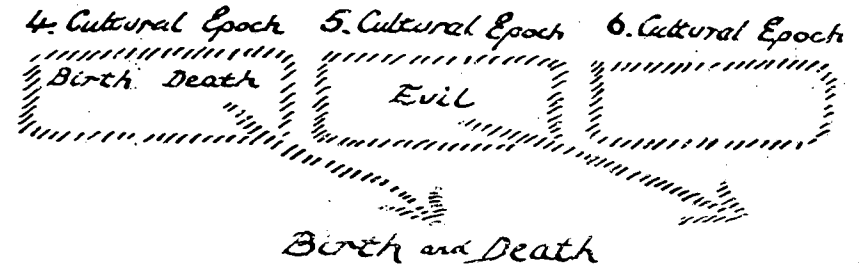 4. Cultural Epoch 5. Cultural Epoch 6. Cultural Epoch
Birth Death Evil
Birth and Death